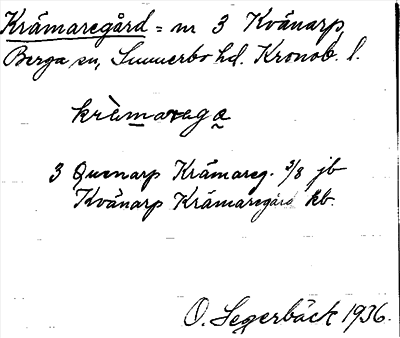 Krämaregård = nr 3 Kvänarp,
Berga sn, Sunnerbo hd. Kronob. l.
kràmarega
3 Quenarp Krämareg. 3/8 jb
Kvänarp Krämaregård kb.
O. Segerbäck 1936.